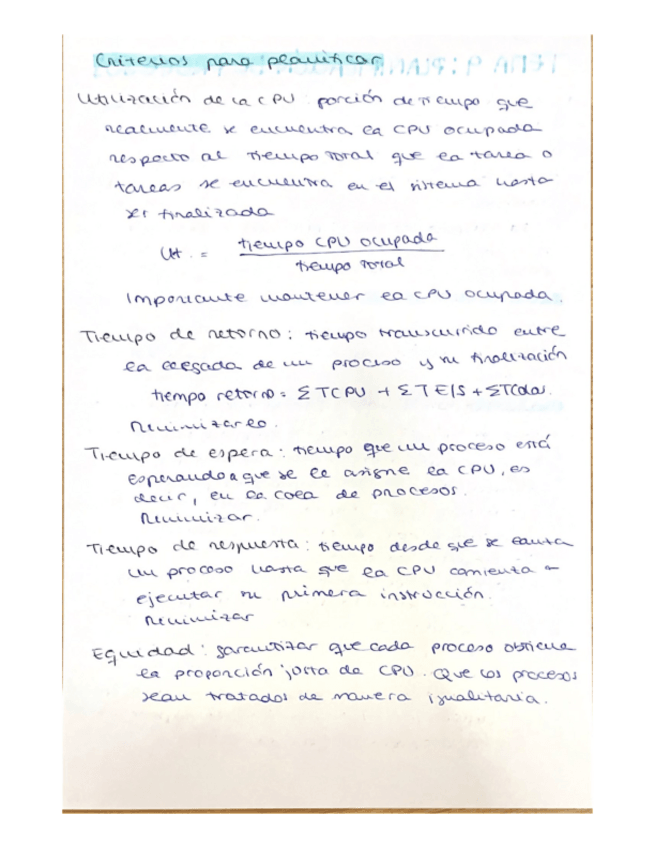 Criterios para planificar
Utilización de la CPU: porción de tiempo que
realmente se encuentra la CPU ocupada
respecto al tiempo total que la tarea o
tareas se encuentra en el sistema hasta
ser finalizada
Ut. = tiempo CPU ocupada
tiempo total
Importante mantener la CPU ocupada.
Tiempo de retorno: tiempo transcurrido entre
la llegada de un proceso y su finalización
tiempo retorno = ΣTCPU + ΣTE/S + ΣTColas.
Minimizarlo.
Tiempo de espera: tiempo que un proceso está
esperando a que se le asigne la CPU, es
decir, en la cola de procesos.
Minimizar.
Tiempo de respuesta: tiempo desde que se lanza
un proceso hasta que la CPU comienza a
ejecutar su primera instrucción.
Minimizar
Equidad: garantizar que cada proceso obtiene
la proporción justa de CPU. Que los procesos
sean tratados de manera igualitaria.